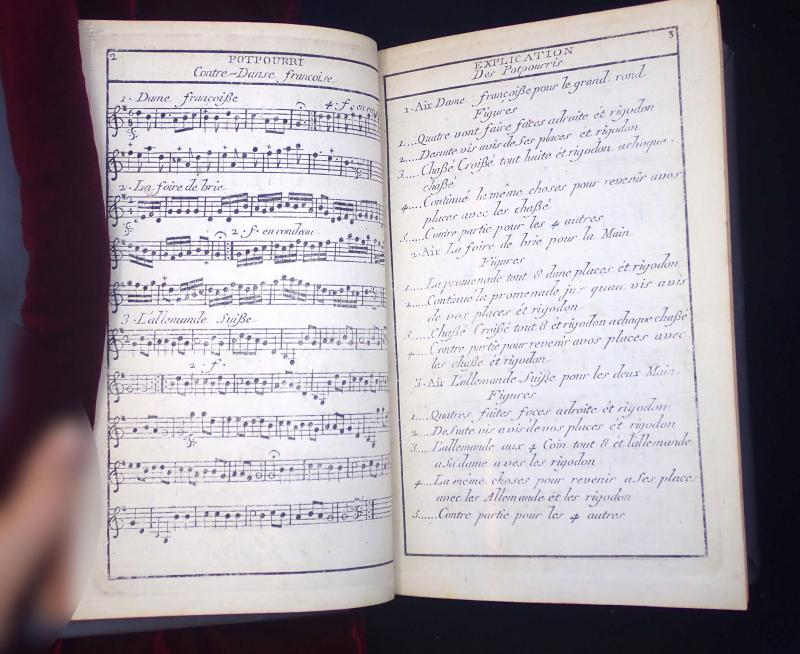 2
POTPOURRI
Contre-Danse françoise
1. Dame françoiße
4. f. en
2. La foire de brie
2. f. en rondeau
3. L'allemande Suiße
2. f.
3
EXPLICATION
Des Potpourris
1. Air Dame françoiße pour le grand rond
Figures
1....Quatre vont faire faces adroite ét rigodon
2....Desuite vis avis de Ses places ét rigodon
3....Chaßé Croißé tout huite ét rigodon achaque
chaßé
4....Continué la même choses pour revenir avos
places avec les chaßé
5....Contre partie pour les 4 autres
2. Air La foire de brie pour la Main
Figures
1....La promenade tout 8 dune places ét rigodon
2....Continue la promenade jus quau vis avis
de vos places ét rigodon
3....Chaßé Croißé tout 8 ét rigodon achaque chaßé
4....Contre partie pour revenir avos places avec
les chaßé ét rigodon
3. Air L'allemande Suiße pour les deux Main
Figures
1....Quatres faites faces adroite ét rigodon
2....DeSuite vis avis de vos places ét rigodon
3....L'allemande aux 4 Coin tout 8 ét lallemande
aSa dame aves les rigodon
4....La même choses pour revenir aSes places
avec les Allemande ét les rigodon
5....Contre partie pour les 4 autres